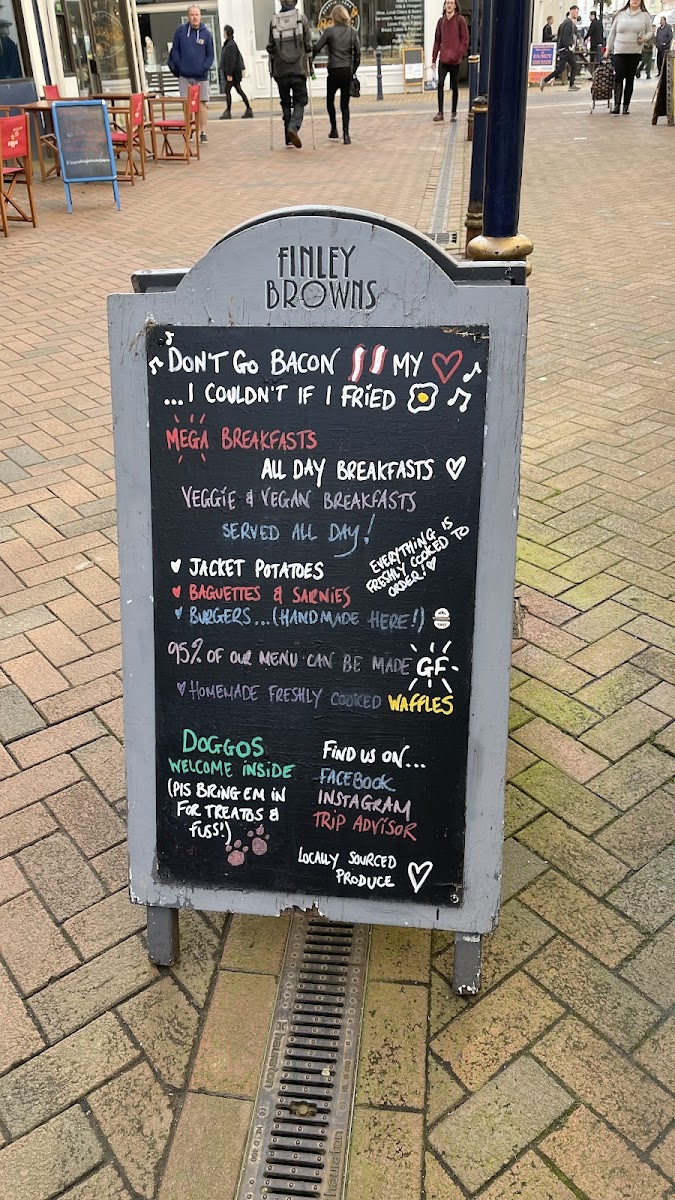 FINLEY
BROWNS
DON'T GO BACON MY
...I COULDN'T IF I FRIED
MEGA BREAKFASTS
ALL DAY BREAKFASTS
VEGGIE & VEGAN BREAKFASTS
SERVED ALL DAY!
EVERYTHING IS
FRESHLY COOKED TO
ORDER!
JACKET POTATOES
BAGUETTES & SARNIES
BURGERS...(HANDMADE HERE!)
95% OF OUR MENU CAN BE MADE GF
HOMEMADE FRESHLY COOKED WAFFLES
DOGGOS
WELCOME INSIDE
(PLS BRING EM IN
FOR TREATOS &
FUSS!)
FIND US ON...
FACEBOOK
INSTAGRAM
TRIP ADVISOR
LOCALLY SOURCED
PRODUCE